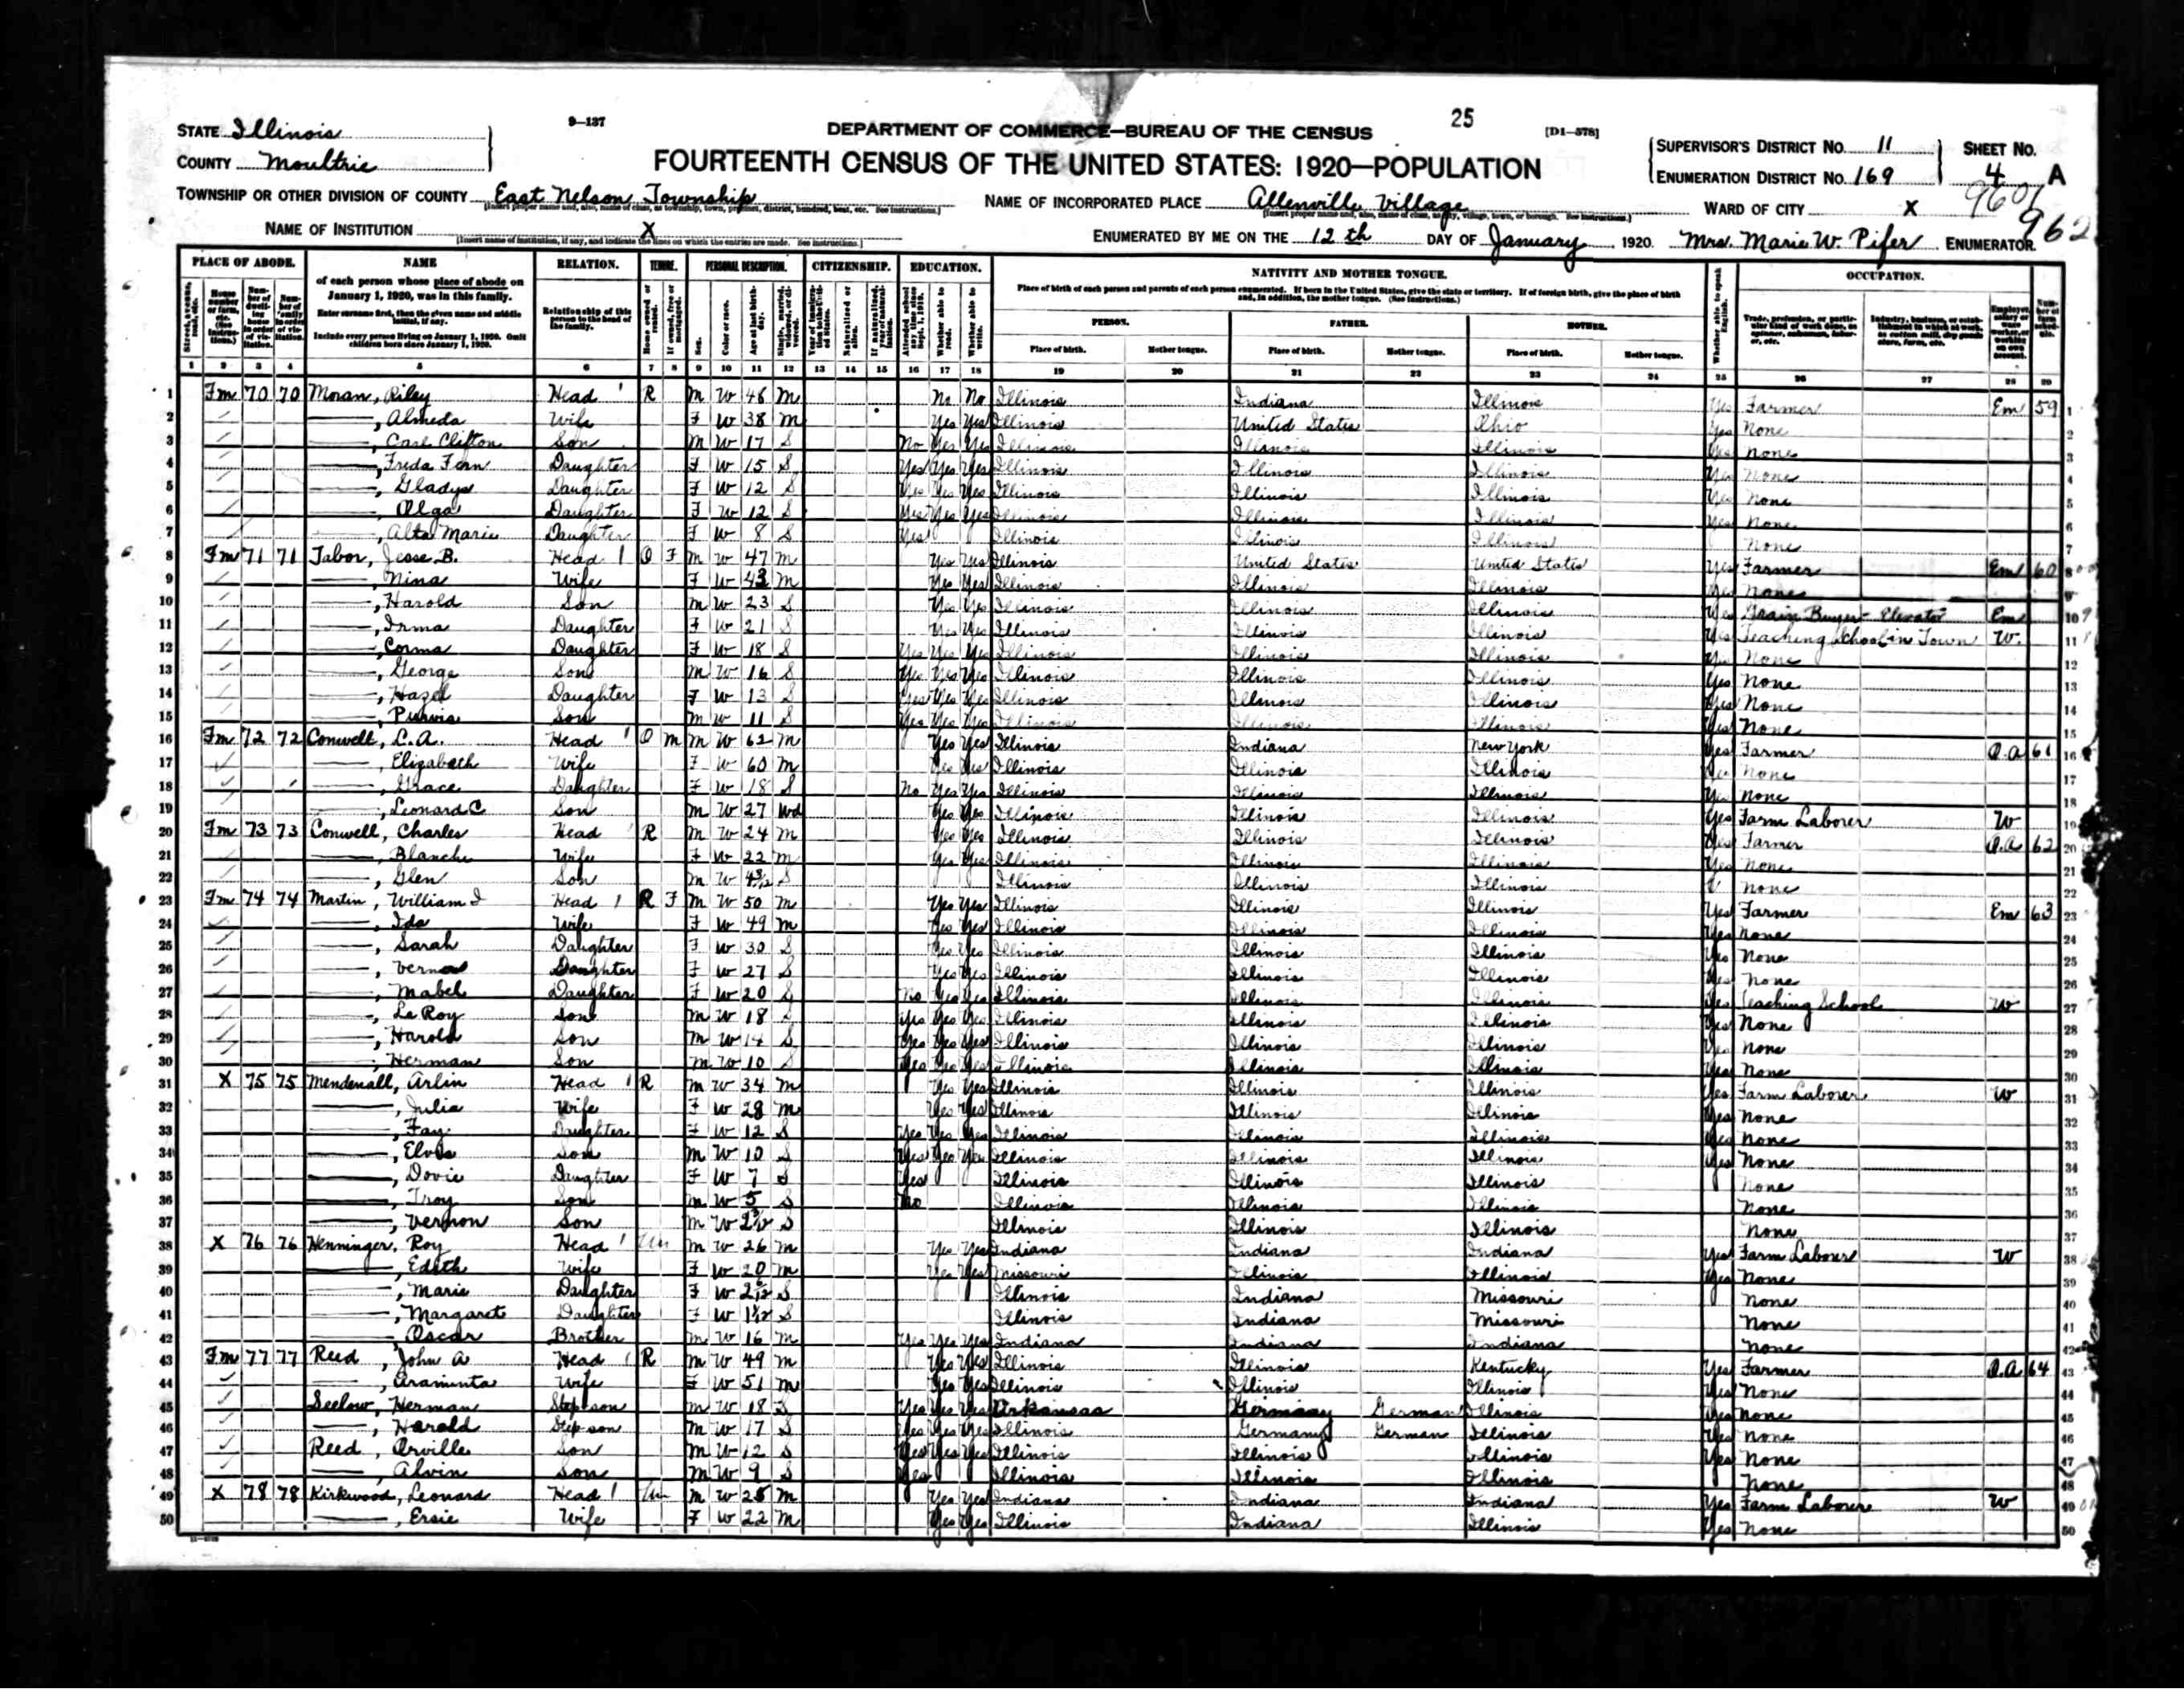 9—137
25
[D1—578]
STATE Illinois
COUNTY Moultrie
DEPARTMENT OF COMMERCE—BUREAU OF THE CENSUS
FOURTEENTH CENSUS OF THE UNITED STATES: 1920—POPULATION
SUPERVISOR'S DISTRICT No. 11
ENUMERATION DISTRICT No. 169
SHEET No. 4 A
9601
962
TOWNSHIP OR OTHER DIVISION OF COUNTY East Nelson Township
NAME OF INCORPORATED PLACE Allenville Village
WARD OF CITY X
NAME OF INSTITUTION X
ENUMERATED BY ME ON THE 12th DAY OF January, 1920. Mrs. Marie W. Pifer ENUMERATOR.
PLACE OF ABODE. NAME RELATION. TENURE. PERSONAL DESCRIPTION. CITIZENSHIP. EDUCATION. NATIVITY AND MOTHER TONGUE. OCCUPATION.
of each person whose place of abode on January 1, 1920, was in this family.
Enter surname first, then the given name and middle initial, if any.
Include every person living on January 1, 1920. Omit children born since January 1, 1920.
Relationship of this person to the head of the family.
Place of birth of each person and parents of each person enumerated. If born in the United States, give the state or territory. If of foreign birth, give the place of birth and, in addition, the mother tongue. (See Instructions.)
PERSON. FATHER. MOTHER.
Place of birth. Mother tongue. Place of birth. Mother tongue. Place of birth. Mother tongue.
1 2 3 4 5 6 7 8 9 10 11 12 13 14 15 16 17 18 19 20 21 22 23 24 25 26 27 28 29
1 Fm 70 70 Moran, Riley Head R M W 46 M No No Illinois Indiana Illinois Yes Farmer Em 59 1
2 —, Almeda Wife F W 38 M Yes Yes Illinois United States Ohio Yes None 2
3 —, Carl Clifton Son M W 17 S No Yes Yes Illinois Illinois Illinois Yes None 3
4 —, Freda Fern Daughter F W 15 S Yes Yes Yes Illinois Illinois Illinois Yes None 4
5 —, Gladys Daughter F W 12 S Yes Yes Yes Illinois Illinois Illinois Yes None 5
6 —, Olga Daughter F W 12 S Yes Yes Yes Illinois Illinois Illinois Yes None 6
7 —, Alta Marie Daughter F W 8 S Yes Illinois Illinois Illinois None 7
8 Fm 71 71 Tabor, Jesse B. Head O F M W 47 M Yes Yes Illinois United States United States Yes Farmer Em 60 8
9 —, Nina Wife F W 43 M Yes Yes Illinois Illinois Illinois Yes None 9
10 —, Harold Son M W 23 S Yes Yes Illinois Illinois Illinois Yes Grain Buyer Elevator Em 10
11 —, Irma Daughter F W 21 S Yes Yes Illinois Illinois Illinois Yes Teaching School in Town W. 11
12 —, Corma Daughter F W 18 S Yes Yes Yes Illinois Illinois Illinois Yes None 12
13 —, George Son M W 16 S Yes Yes Yes Illinois Illinois Illinois Yes None 13
14 —, Hazel Daughter F W 13 S Yes Yes Yes Illinois Illinois Illinois Yes None 14
15 —, Purvis Son M W 11 S Yes Yes Yes Illinois Illinois Illinois Yes None 15
16 Fm 72 72 Conwell, L.A. Head O M M W 62 M Yes Yes Illinois Indiana New York Yes Farmer O.A 61 16
17 —, Elizabeth Wife F W 60 M Yes Yes Illinois Illinois Illinois Yes None 17
18 —, Grace Daughter F W 18 S No Yes Yes Illinois Illinois Illinois Yes None 18
19 —, Leonard C Son M W 27 Wd Yes Yes Illinois Illinois Illinois Yes Farm Laborer W 19
20 Fm 73 73 Conwell, Charles Head R M W 24 M Yes Yes Illinois Illinois Illinois Yes Farmer O.A 62 20
21 —, Blanche Wife F W 22 M Yes Yes Illinois Illinois Illinois Yes None 21
22 —, Glen Son M W S Illinois Illinois Illinois None 22
23 Fm 74 74 Martin, William I Head R F M W 50 M Yes Yes Illinois Illinois Illinois Yes Farmer Em 63 23
24 —, Ida Wife F W 49 M Yes Yes Illinois Illinois Illinois Yes None 24
25 —, Sarah Daughter F W 30 S Yes Yes Illinois Illinois Illinois Yes None 25
26 —, Verna Daughter F W 27 S Yes Yes Illinois Illinois Illinois Yes None 26
27 —, Mabel Daughter F W 20 S No Yes Yes Illinois Illinois Illinois Yes Teaching School W 27
28 —, Le Roy Son M W 18 S Yes Yes Yes Illinois Illinois Illinois Yes None 28
29 —, Harold Son M W 14 S Yes Yes Yes Illinois Illinois Illinois Yes None 29
30 —, Herman Son M W 10 S Yes Yes Yes Illinois Illinois Illinois Yes None 30
31 X 75 75 Mendenall, Arlin Head R M W 34 M Yes Yes Illinois Illinois Illinois Yes Farm Laborer W 31
32 —, Julia Wife F W 28 M Yes Yes Illinois Illinois Illinois Yes None 32
33 —, Fay Daughter F W 12 S Yes Yes Yes Illinois Illinois Illinois Yes None 33
34 —, Elvis Son M W 10 S Yes Yes Yes Illinois Illinois Illinois Yes None 34
35 —, Dovie Daughter F W 7 S Yes Illinois Illinois Illinois None 35
36 —, Troy Son M W 5 S No Illinois Illinois Illinois None 36
37 —, Vernon Son M W S Illinois Illinois Illinois None 37
38 X 76 76 Henninger, Roy Head Un M W 26 M Yes Yes Indiana Indiana Indiana Yes Farm Laborer W 38
39 —, Edith Wife F W 20 M Yes Yes Missouri Illinois Illinois Yes None 39
40 —, Marie Daughter F W S Illinois Indiana Missouri None 40
41 —, Margaret Daughter F W S Illinois Indiana Missouri None 41
42 —, Oscar Brother M W 16 M Yes Yes Yes Indiana Indiana Indiana None 42
43 Fm 77 77 Reed, John A Head R M W 49 M Yes Yes Illinois Illinois Kentucky Yes Farmer O.A 64 43
44 —, Araminta Wife F W 51 M Yes Yes Illinois Illinois Illinois Yes None 44
45 Seelow, Herman Stepson M W 18 S Yes Yes Yes Arkansas Germany German Illinois Yes None 45
46 —, Harold Stepson M W 17 S Yes Yes Yes Illinois Germany German Illinois Yes None 46
47 Reed, Orville Son M W 12 S Yes Yes Yes Illinois Illinois Illinois Yes None 47
48 —, Alvin Son M W 9 S Yes Illinois Illinois Illinois None 48
49 X 78 78 Kirkwood, Leonard Head Un M W 25 M Yes Yes Indiana Indiana Indiana Yes Farm Laborer W 49
50 —, Ersie Wife F W 22 M Yes Yes Illinois Indiana Illinois Yes None 50